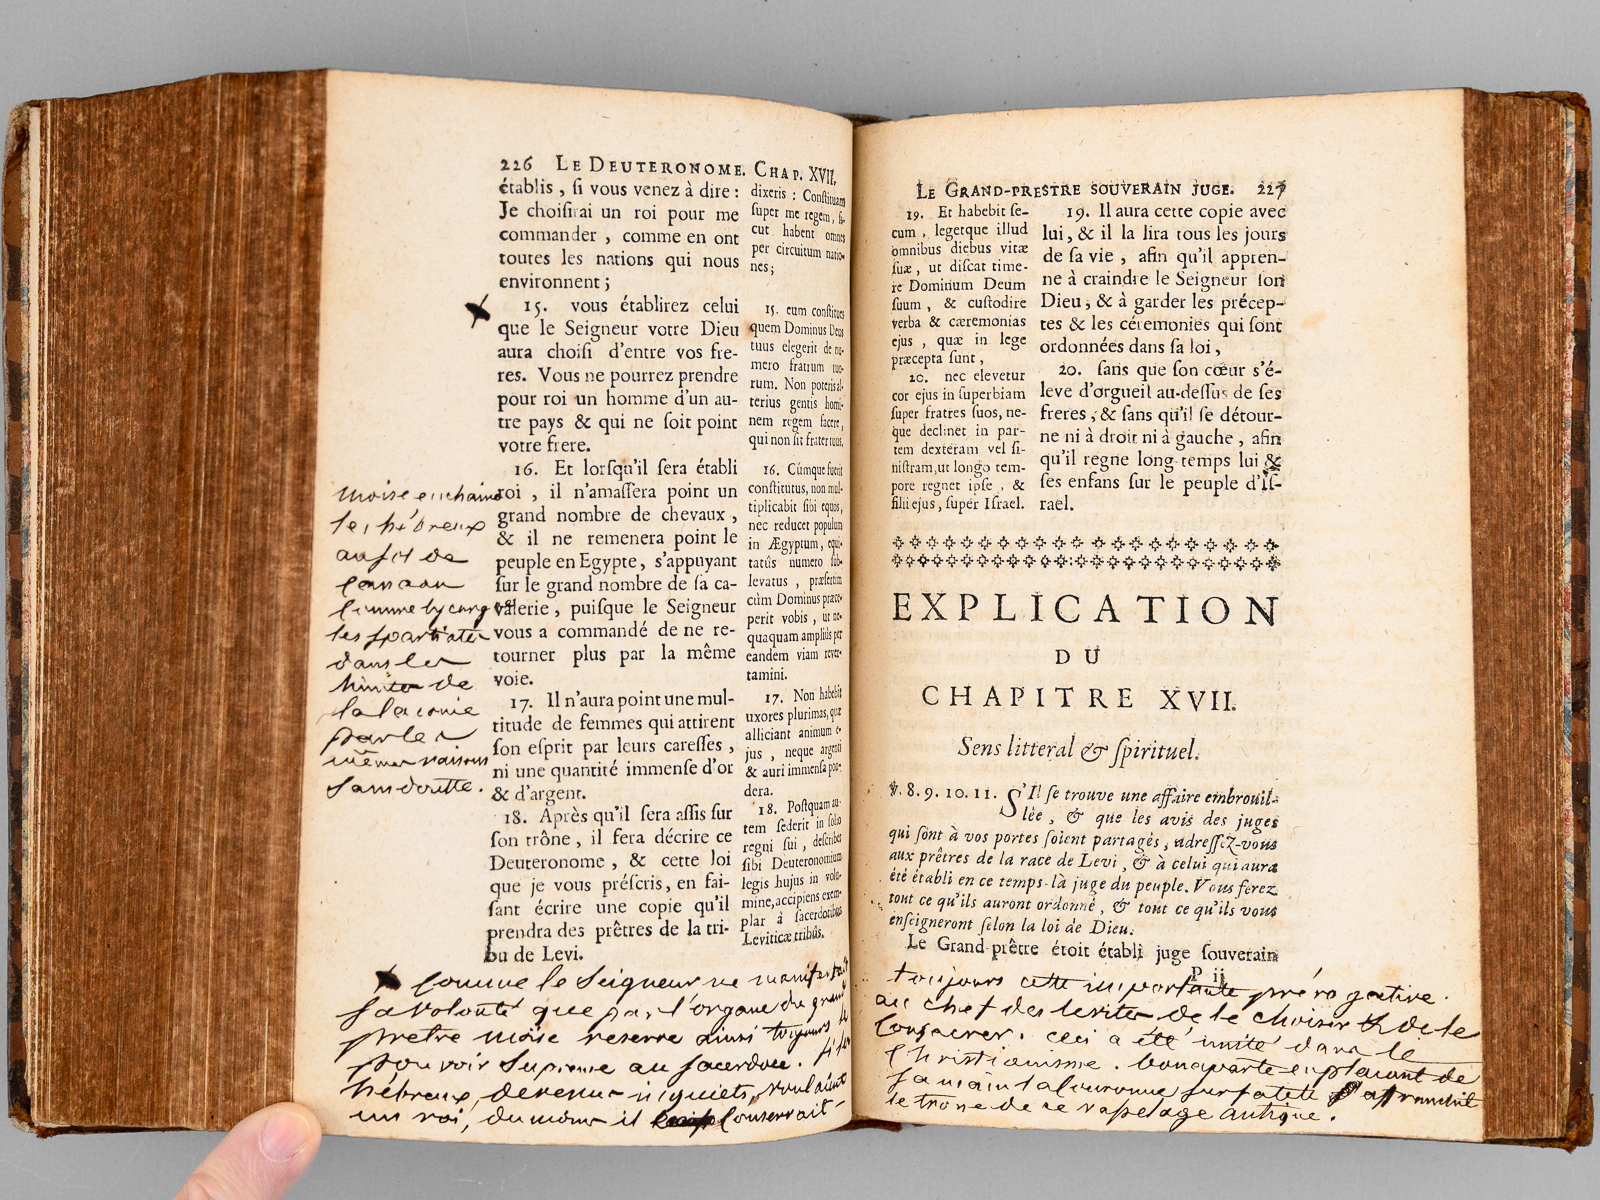 226 LE DEUTERONOME. CHAP. XVII.
établis, ſi vous venez à dire :
Je choiſirai un roi pour me
commander, comme en ont
toutes les nations qui nous
environnent ;
15. vous établirez celui
que le Seigneur votre Dieu
aura choiſi d'entre vos fre-
res. Vous ne pourrez prendre
pour roi un homme d'un au-
tre pays & qui ne ſoit point
votre frere.
16. Et lorſqu'il ſera établi
roi, il n'amaſſera point un
grand nombre de chevaux,
& il ne remenera point le
peuple en Egypte, s'appuyant
ſur le grand nombre de ſa ca-
valerie, puiſque le Seigneur
vous a commandé de ne re-
tourner plus par la même
voie.
17. Il n'aura point une mul-
titude de femmes qui attirent
ſon eſprit par leurs careſſes,
ni une quantité immenſe d'or
& d'argent.
18. Après qu'il ſera aſſis ſur
ſon trône, il fera décrire ce
Deuteronome, & cette loi
que je vous préſcris, en fai-
ſant écrire une copie qu'il
prendra des prêtres de la tri-
bu de Levi.
dixeris : Conſtituam
ſuper me regem, ſi-
cut habent omnes
per circuitum natio-
nes ;
15. eum conſtitues
quem Dominus Deus
tuus elegerit de nu-
mero fratrum tuo-
rum. Non poteris al-
terius gentis homi-
nem regem facere,
qui non ſit frater tuus.
16. Cùmque fuerit
conſtitutus, non mul-
tiplicabit ſibi equos,
nec reducet populum
in Ægyptum, equi-
tatûs numero ſub-
levatus, præſertim
cùm Dominus præce-
perit vobis, ut ne-
quaquam ampliùs per
eandem viam rever-
tamini.
17. Non habebit
uxores plurimas, quæ
alliciant animum e-
jus, neque argenti
& auri immenſa pon-
dera.
18. Poſtquam au-
tem ſederit in ſolio
regni ſui, deſcribet
ſibi Deuteronomium
legis hujus in volu-
mine, accipiens exem-
plar à ſacerdotibus
Leviticæ tribûs.
moise enchaine
les hébreux
au sol de
Canaan
comme lycurgue
les spartiates
dans les
limites de
la laconie
par les
mêmes raisons
sans doutte.
Comme le Seigneur ne manifestait
sa volonté que par l'organe du grand
prêtre moïse reserve ainsi toujours le
pouvoir suprême au sacerdoce. si les
hébreux, devenus inquiets, voulaient
un roi, du moins il conservait
LE GRAND-PRESTRE SOUVERAIN JUGE. 227
19. Et habebit ſe-
cum, legetque illud
omnibus diebus vitæ
ſuæ, ut diſcat time-
re Dominum Deum
ſuum, & cuſtodire
verba & cæremonias
ejus, quæ in lege
præcepta ſunt,
20. nec elevetur
cor ejus in ſuperbiam
ſuper fratres ſuos, ne-
que declinet in par-
tem dexteram vel ſi-
niſtram, ut longo tem-
pore regnet ipſe, &
filii ejus, ſuper Iſrael.
19. Il aura cette copie avec
lui, & il la lira tous les jours
de ſa vie, afin qu'il appren-
ne à craindre le Seigneur ſon
Dieu, & à garder les précep-
tes & les céremonies qui ſont
ordonnées dans ſa loi,
20. ſans que ſon cœur s'é-
leve d'orgueil au-deſſus de ſes
freres, & ſans qu'il ſe détour-
ne ni à droit ni à gauche, afin
qu'il regne long-temps lui &
ſes enfans ſur le peuple d'Iſ-
rael.
EXPLICATION
DU
CHAPITRE XVII.
Sens litteral & ſpirituel.
℣. 8. 9. 10. 11. S'Il ſe trouve une affaire embrouil-
lée, & que les avis des juges
qui ſont à vos portes ſoient partagés, adreſſez-vous
aux prêtres de la race de Levi, & à celui qui aura
été établi en ce temps-là juge du peuple. Vous ferez
tout ce qu'ils auront ordonné, & tout ce qu'ils vous
enſeigneront ſelon la loi de Dieu.
Le Grand-prêtre étoit établi juge ſouverain
P ij
toujours cette importante prérogative
au chef des levites de le choisir & de le
Consacrer. ceci a été imité dans le
Christianisme. bonaparte en plaçant de
sa main la couronne sur sa tete affranchit
le trone de ce vasselage antique.